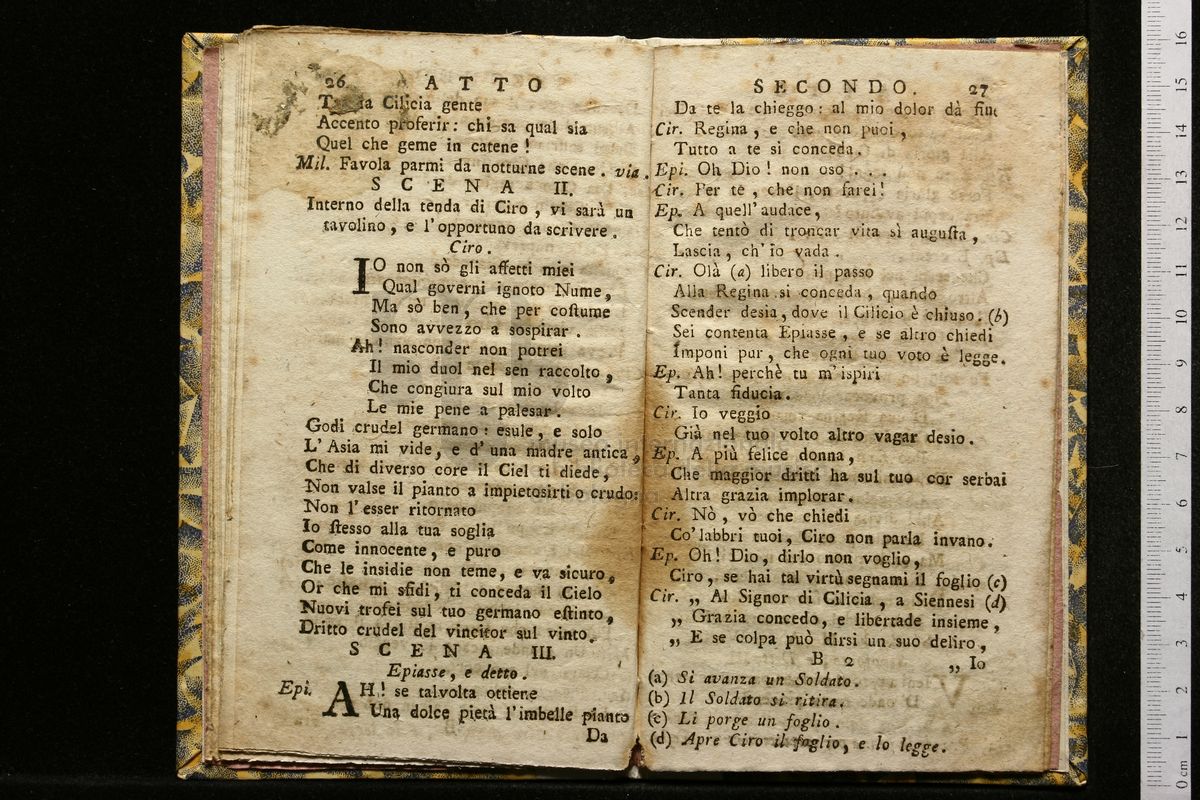 26 ATTO
Cilicia gente
Accento proferir: chi sa qual sia
Quel che geme in catene!
Mil. Favola parmi da notturne scene. via.
SCENA II.
Interno della tenda di Ciro, vi sarà un
tavolino, e l'opportuno da scrivere.
Ciro.
IO non sò gli affetti miei
Qual governi ignoto Nume,
Ma sò ben, che per coſtume
Sono avvezzo a sospirar.
Ah! nasconder non potrei
Il mio duol nel sen raccolto,
Che congiura sul mio volto
Le mie pene a palesar.
Godi crudel germano: esule, e solo
L'Asia mi vide, e d'una madre antica,
Che di diverso core il Ciel ti diede,
Non valse il pianto a impietosirti o crudo:
Non l'esser ritornato
Io ſtesso alla tua soglia
Come innocente, e puro
Che le insidie non teme, e va sicuro,
Or che mi sfidi, ti conceda il Cielo
Nuovi trofei sul tuo germano eſtinto,
Dritto crudel del vincitor sul vinto.
SCENA III.
Epiasse, e detto.
Epi. AH! se talvolta ottiene
Una dolce pietà l'imbelle pianto
Da
SECONDO. 27
Da te la chieggo: al mio dolor dà fine
Cir. Regina, e che non puoi,
Tutto a te si conceda.
Epi. Oh Dio! non oso . . .
Cir. Per te, che non farei!
Ep. A quell'audace,
Che tentò di troncar vita sì auguſta,
Lascia, ch'io vada.
Cir. Olà (a) libero il passo
Alla Regina si conceda, quando
Scender desia, dove il Cilicio è chiuso. (b)
Sei contenta Epiasse, e se altro chiedi
Imponi pur, che ogni tuo voto è legge.
Ep. Ah! perchè tu m'ispiri
Tanta fiducia.
Cir. Io veggio
Già nel tuo volto altro vagar desio.
Ep. A più felice donna,
Che maggior dritti ha sul tuo cor serbai
Altra grazia implorar.
Cir. Nò, vò che chiedi
Co'labbri tuoi, Ciro non parla invano.
Ep. Oh! Dio, dirlo non voglio,
Ciro, se hai tal virtù segnami il foglio (c)
Cir. „ Al Signor di Cilicia, a Siennesi (d)
„ Grazia concedo, e libertade insieme,
„ E se colpa può dirsi un suo deliro,
B 2 „ Io
(a) Si avanza un Soldato.
(b) Il Soldato si ritira.
(c) Li porge un foglio.
(d) Apre Ciro il foglio, e lo legge.
16
15
14
13
12
11
10
9
8
7
6
5
4
3
2
1
0 cm